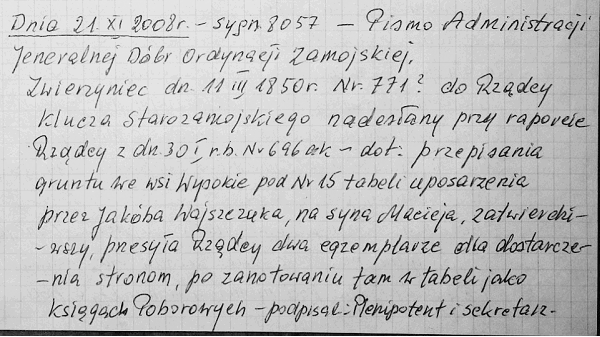 Dnia 21. XI 2008r. - sygn. 8057 - Pismo Administracji
Jeneralnej Dóbr Ordynacji Zamojskiej.
Zwierzyniec dn. 11 III 1850r. Nr. 771? do Rządcy
Klucza Starozamojskiego nadesłany przy raporcie
Rządcy z dn. 30 I r.b. Nr 696 - dot: przepisania
gruntu we wsi Wysokie pod Nr 15 tabeli uposarzenia
przez Jakóba Wajszczuka, na syna Macieja, zatwierdzi-
-wszy, przesyła Rządcy dwa egzemplarze dla dostarcze-
-nia stronom, po zanotowaniu tam w tabeli jako
księgach Poborowych - podpisał: Plenipotent i sekretarz-